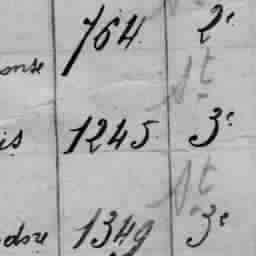 onse 764 2e
is 1245 3e
dore 1349 3e